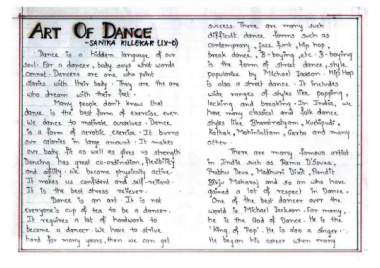 ART OF DANCE
-SANIKA KILLEKAR (IX-D)
Dance is a hidden language of our
soul. For a dancer, body says what words
cannot. Dancers are one who paint
stories with their body. They are the one
who dream with their feet.
Many people don't know that
dance is the best form of exercise ever.
We dance to motivate ourselves. Dance
is a form of aerobic exercise. It burns
our calories in large amount. It makes
our body fit as well as gives us strength
Dancing has great co-ordination, flexibility
and agility. We become physically active.
It makes us confident and self-reliant.
It is the best stress reliever.
Dance is an art. It is not
everyone's cup of tea to be a dancer.
It requires a lot of hardwork to
become a dancer. We have to strive
hard for many years, then we can get
success. There are many such
difficult dance forms such as
contemporary, jazz, tint, hip hop,
break dance, B-boying etc. B-boying
is the form of street dance, style
popularise by Michael Jackson. Hip Hop
is also a street dance. It includes
wide ranges of styles like popping,
locking and breaking. In India, we
have many classical and folk dance
styles like Bharatnatyam, Kathakali,
Kathak, Mohiniattam, Garba and many
other.
There are many famous artist
in India such as Remo D'Souza,
Prabhu Deva, Madhuri Dixit, Pandit
Birju Maharaj and so on who have
gained a lot of respect in Dance.
One of the best dancer over the
world is Michael Jackson. For many,
he is the God of Dance. He is the
'King of Pop'. He is also a singer.
He began his career when many